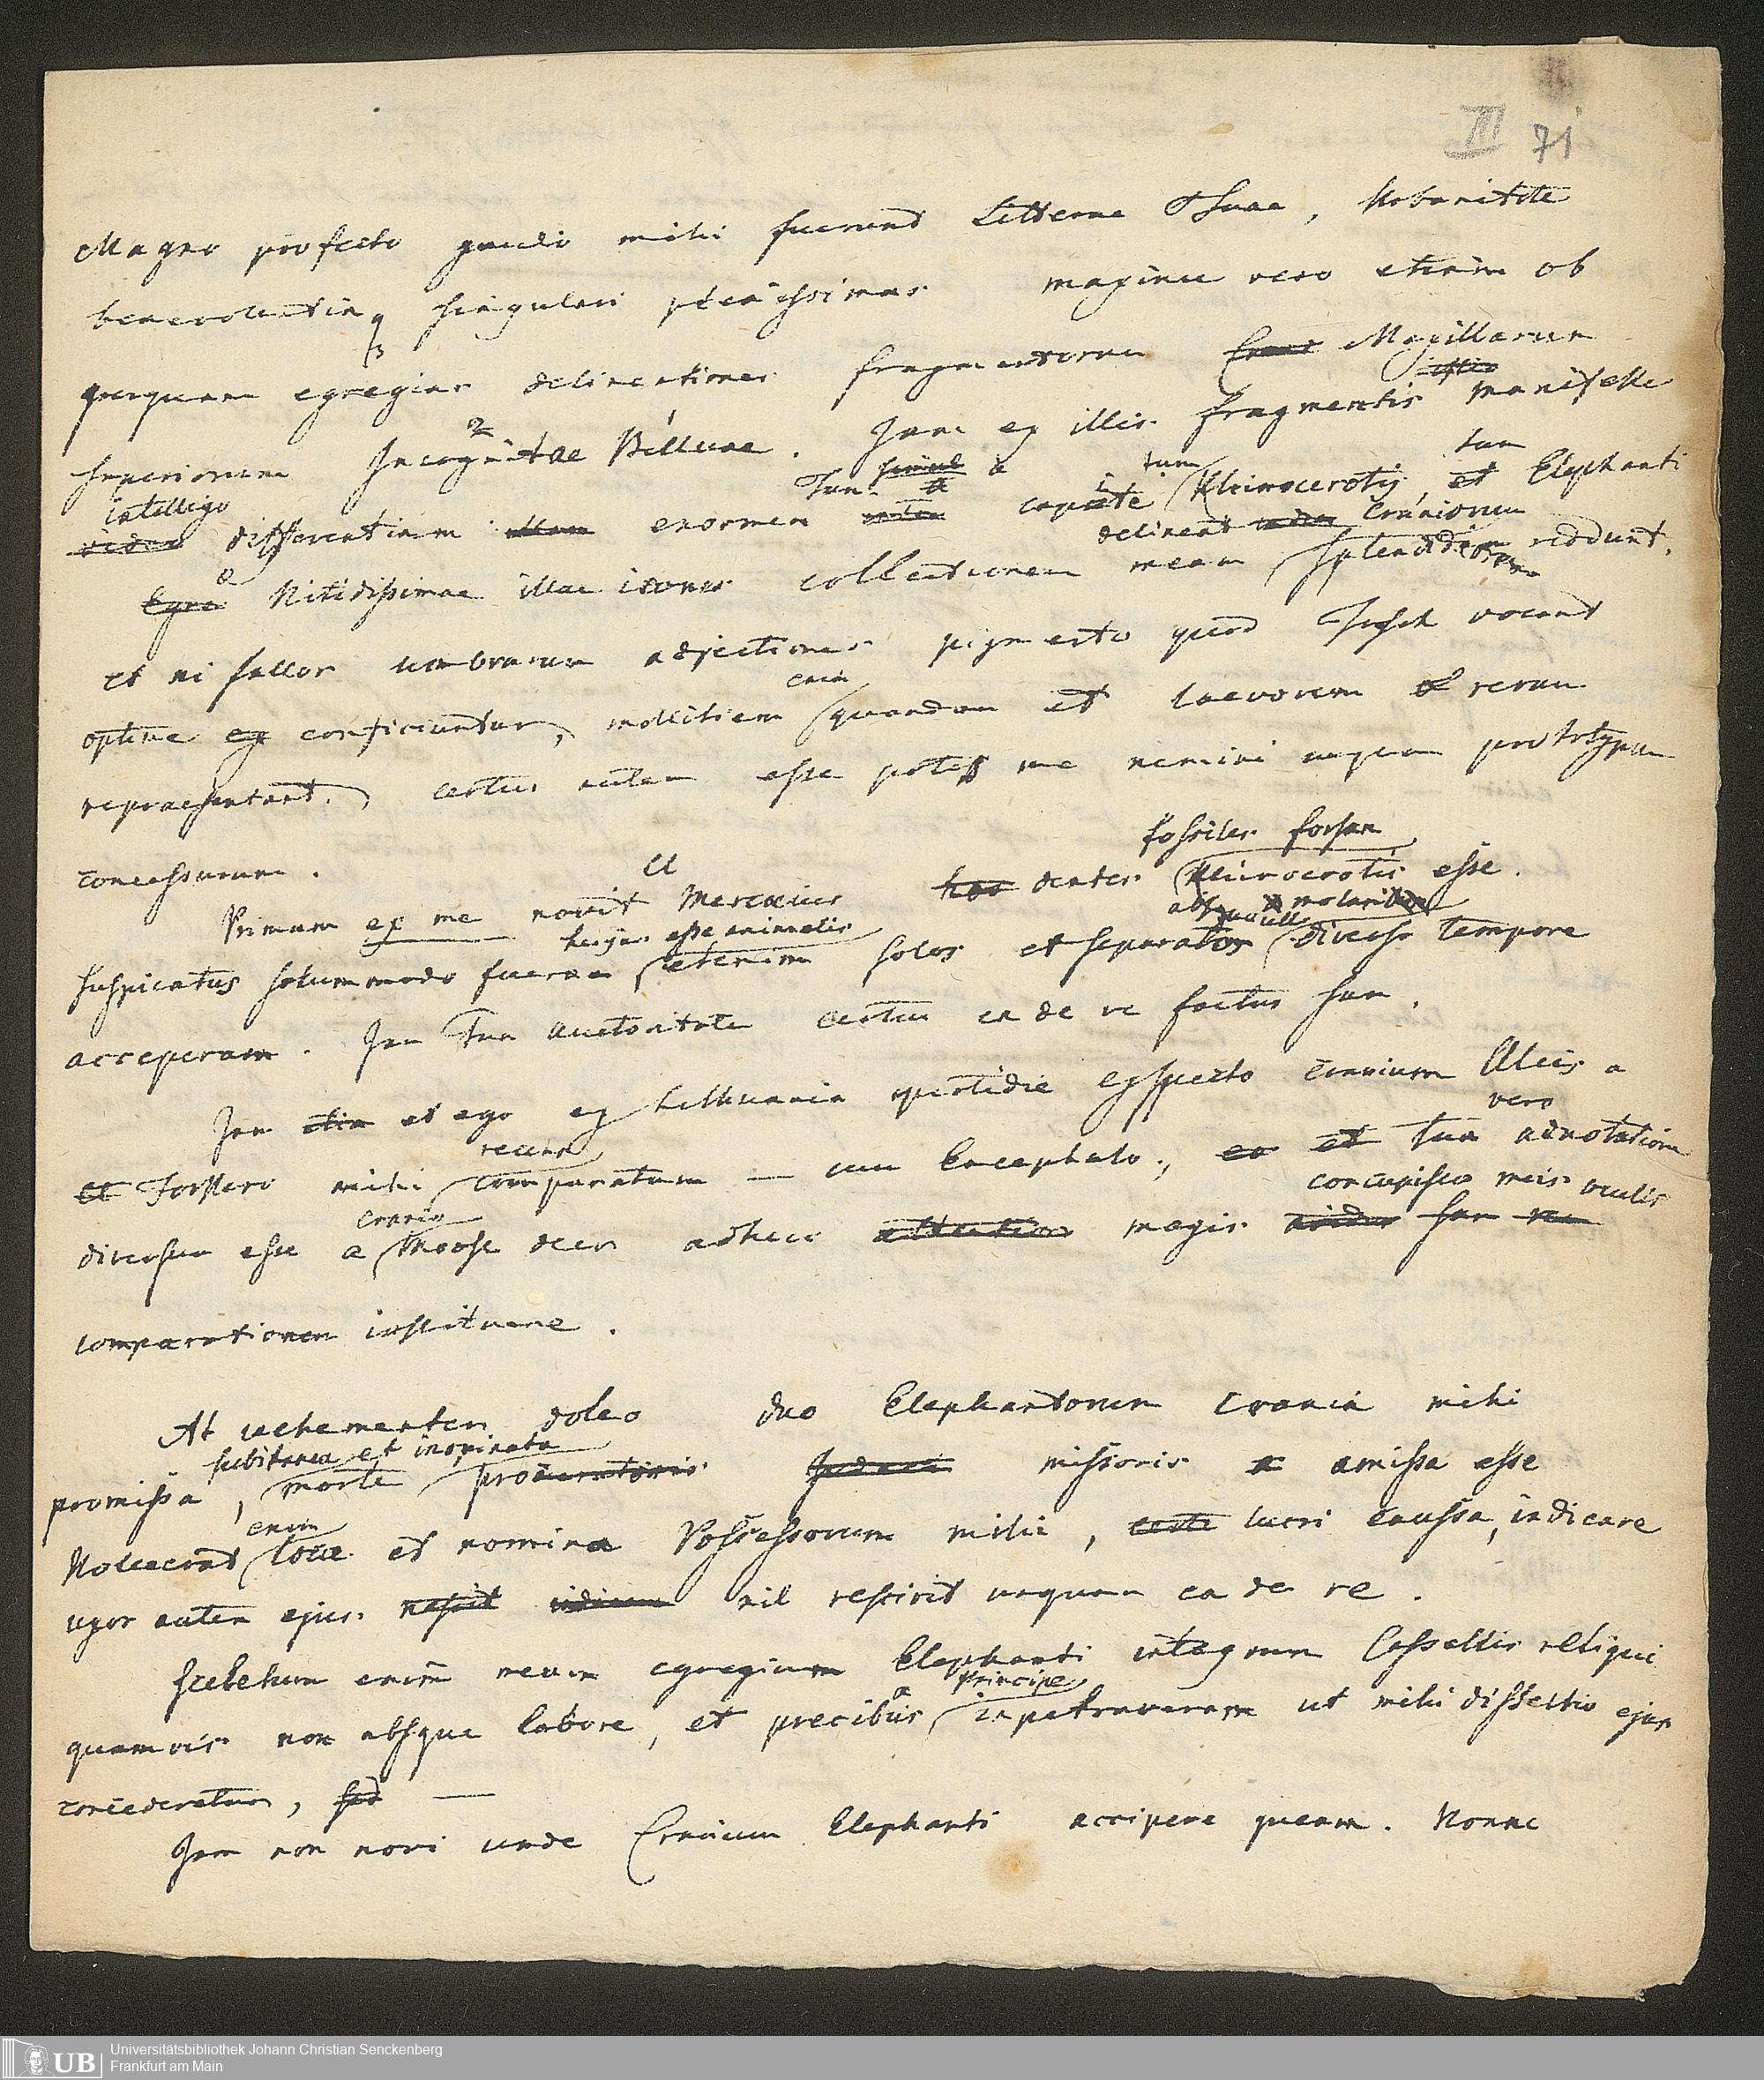 III 71
Magno profecto gaudio mihi fuerunt Litterae Tuae, Urbanitate
benevolentiaq singulari plenissimae maxime vero etenim ob
perquam egregias delineationes fragmentorum Maxillarum
superiorum Incognitae Belluae. Jam ex illis fragmentis manifesto
intelligo tum a tum tum
differentiam enormem capite Rhinocerotis, et Elephanti
delineat craniorum
Nitidissimae illae icones collectionem meam splendidiorem reddunt,
et ni fallor umbrarum adjectiones pigmento quod Tusch vocant
enim
optime ex conficiuntur, mollitiem quandam et laevorem rerum
repraesentant. certus autem esse potes me nemini unquam prototypum
fossiles forsan
concessurum.
Primum ex me novit Cl Merckius hos dentes Rhinocerotis esse.
hujus esse animalis absq molaribus
suspicatus solummodo fueram etenim solos et separatos diverso tempore
acceperam. Jam Tua auctoritate certus ea de re factus sum.
Jam etiam et ego ex Lithuania quotidie exspecto cranium Alcis a
recens vero
Forstero mihi comparatum — cum Encephalo, et tua adnotatione
cranio concupisco meis oculis
diversum esse a Moose deer adhuc magis
comparationem instituere.
At vehementer doleo duo Elephantorum Crania mihi
subitanea et inopinata
promissa, morte procuratoris missoris amissa esse
enim
Noluerat loca et nomina Possessorum mihi, certe lucri caussa, indicare
uxor autem ejus nescit nil rescivit unquam ea de re.
Sceletum enim meum egregium Elephanti integrum Cassellis reliqui
a Principe
quamvis non absque labore, et precibus impetraveram ut mihi dissectio ejus
concederetur, sed —
Jam non novi unde Cranium Elephanti accipere queam. Nonne
UB Universitätsbibliothek Johann Christian Senckenberg
Frankfurt am Main